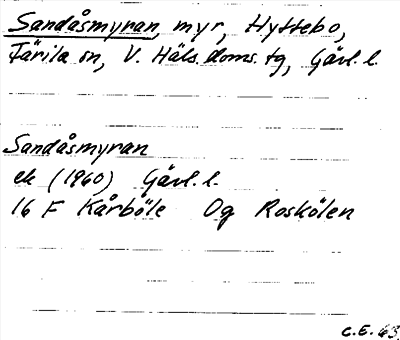 Sandåsmyran, myr, Hyttebo,
Färila sn, V. Häls. doms. tg, Gävl. l.
Sandåsmyran
ek (1960) Gävl. l.
16 F Kårböle Og Roskölen
C.E. 63.